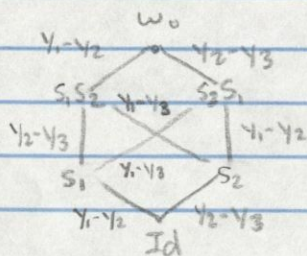 w₀
y₁-y₂ y₂-y₃
S₁S₂ y₁-y₃ S₂S₁
y₂-y₃ y₁-y₂
S₁ y₁-y₃ S₂
y₁-y₂ y₂-y₃
Id